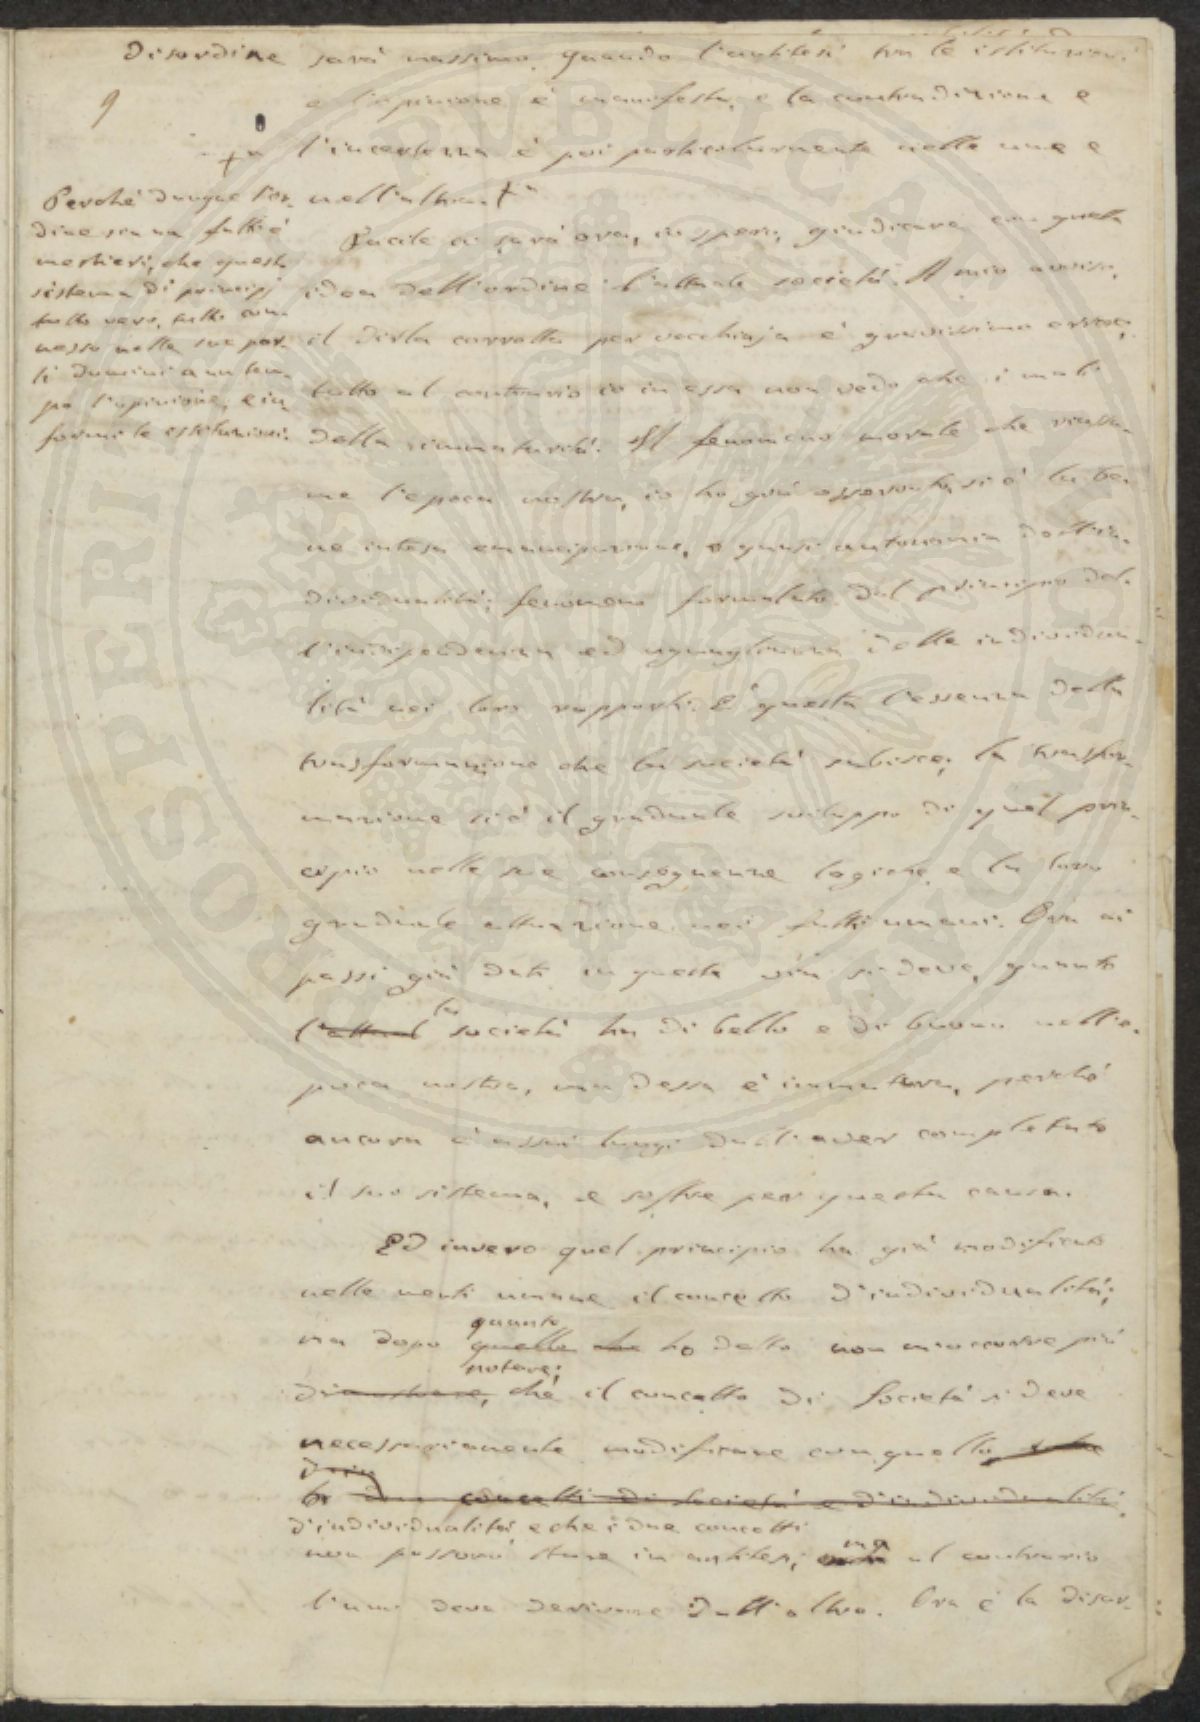 Disordine sarà massimo quando l'antitesi tra le istituzioni
e l'opinione è manifesta, e la contradizione e
9
l'incertezza è poi particolarmente nelle une e
nell'altra. +
+ Perchè dunque l'or-
dine sia na fatti è
mestieri, che questo
sistema di principj
tutto vero, tutto con-
nesso nelle sue par-
ti domini a un tem-
po l'opinione, e in-
formi le istituzioni.
Facile ci sarà ora, io spero, giudicare con questa
idea dell'ordine l'attuale società. A mio avviso,
il dirla corrotta per vecchiaja è gravissimo errore;
tutto al contrario io in essa non vedo che i mali
della immaturità. Il fenomeno morale che riassu-
me l'epoca nostra, io ho già osservato, si è la be-
ne intesa emancipazione, e quasi autonomia dell'in-
dividualità; fenomeno formulato dal principio del-
l'indipendenza ed uguaglianza delle individua-
lità nei loro rapporti. È questa l'essenza della
trasformazione che la società subisce; la trasfor-
mazione si è il graduale sviluppo di quel prin-
cipio nelle sue conseguenze logiche e la loro
graduale attuazione nei fatti umani. Ora ai
passi già dati in questa via si deve, quanto
l'attual la società ha di bello e di buono nell'e-
poca nostra, ma dessa è immatura, perchè
ancora è assai lungi dall'aver completato
il suo sistema, e soffre per questa causa.
Ed invero quel principio ha già modificato
nelle menti umane il concetto d'individualità;
quanto
ma dopo quello che ho detto non mi occorre più
notare;
dimostrare, chè il concetto di Società si deve
necessariamente modificare con quello
concetti di società e d'individualità
d'individualità e che i due concetti
non possono stare in antitesi; ma al contrario
l'uno deve derivare dall'altro. Ora è la disor-